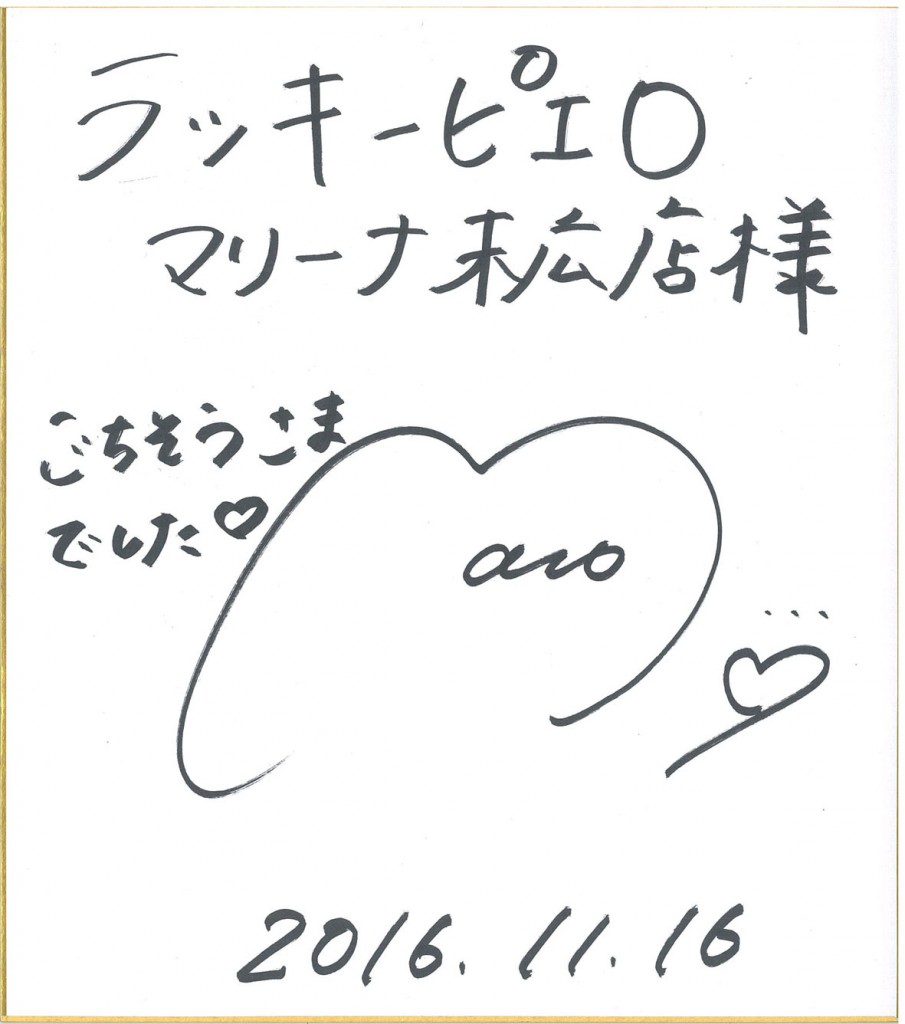 ラッキーピエロ
マリーナ末広店様
ごちそうさま
でした♡
maro
2016.11.16